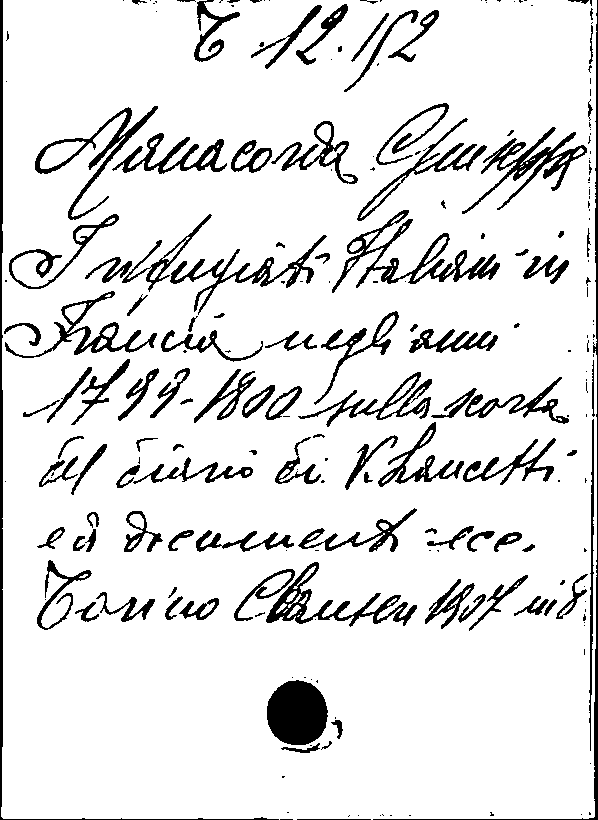 T. 12. 152
Manacorda Giuseppe
I rifugiati Italiani in
Francia negli anni
1799-1800 sulla scorta
del diario di V. Lancetti
ed documenti ecc.
Torino Clausen 1907 in 8